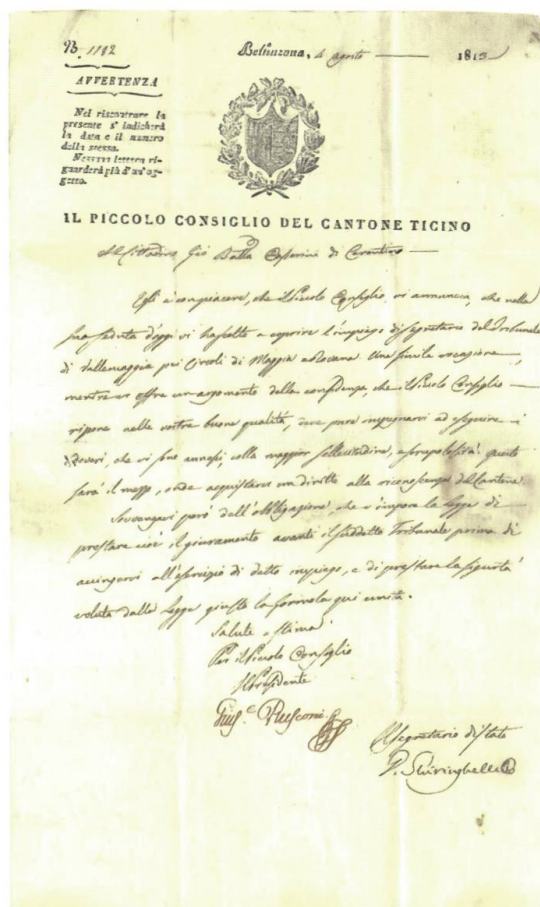 N. 1182 Bellinzona, 4 agosto 1813
AVVERTENZA
Nel riscontrare la
presente s' indicherà
la data e il numero
della stessa.
Nessuna lettera ri-
guarderà più d' un' og-
getto.
IL PICCOLO CONSIGLIO DEL CANTONE TICINO
Al Cittadino Gio Batta di Cerentino
Egli è compiacere, che il Piccolo Consiglio, vi annuncia, che nella
sua seduta d'oggi vi ha scelto a coprire l'impiego di segretario del Tribunale
di Vallemaggia pei Circoli di Maggia e Rovana. Una simile occasione,
mentre vi offre un argomento della confidenza, che il Piccolo Consiglio
ripone nelle vostre buone qualità, deve pure impegnarvi ad eseguire i
doveri, che vi sono annessi, colla maggior sollecitudine, e scrupolosità: questo
sarà il mezzo, onde acquistarvi un diritto alla riconoscenza del Cantone.
Sovvengavi però dell'obbligazione, che v'impone la legge di
prestare cioè il giuramento avanti il suddetto Tribunale prima di
accingervi all'esercizio di detto impiego, e di prestare la sigurtà
voluta dalla legge giusta la formola qui unita.
Salute e stima
Per il Piccolo Consiglio
Il Presidente
Gius.e Rusconi
Il Segretario di Stato